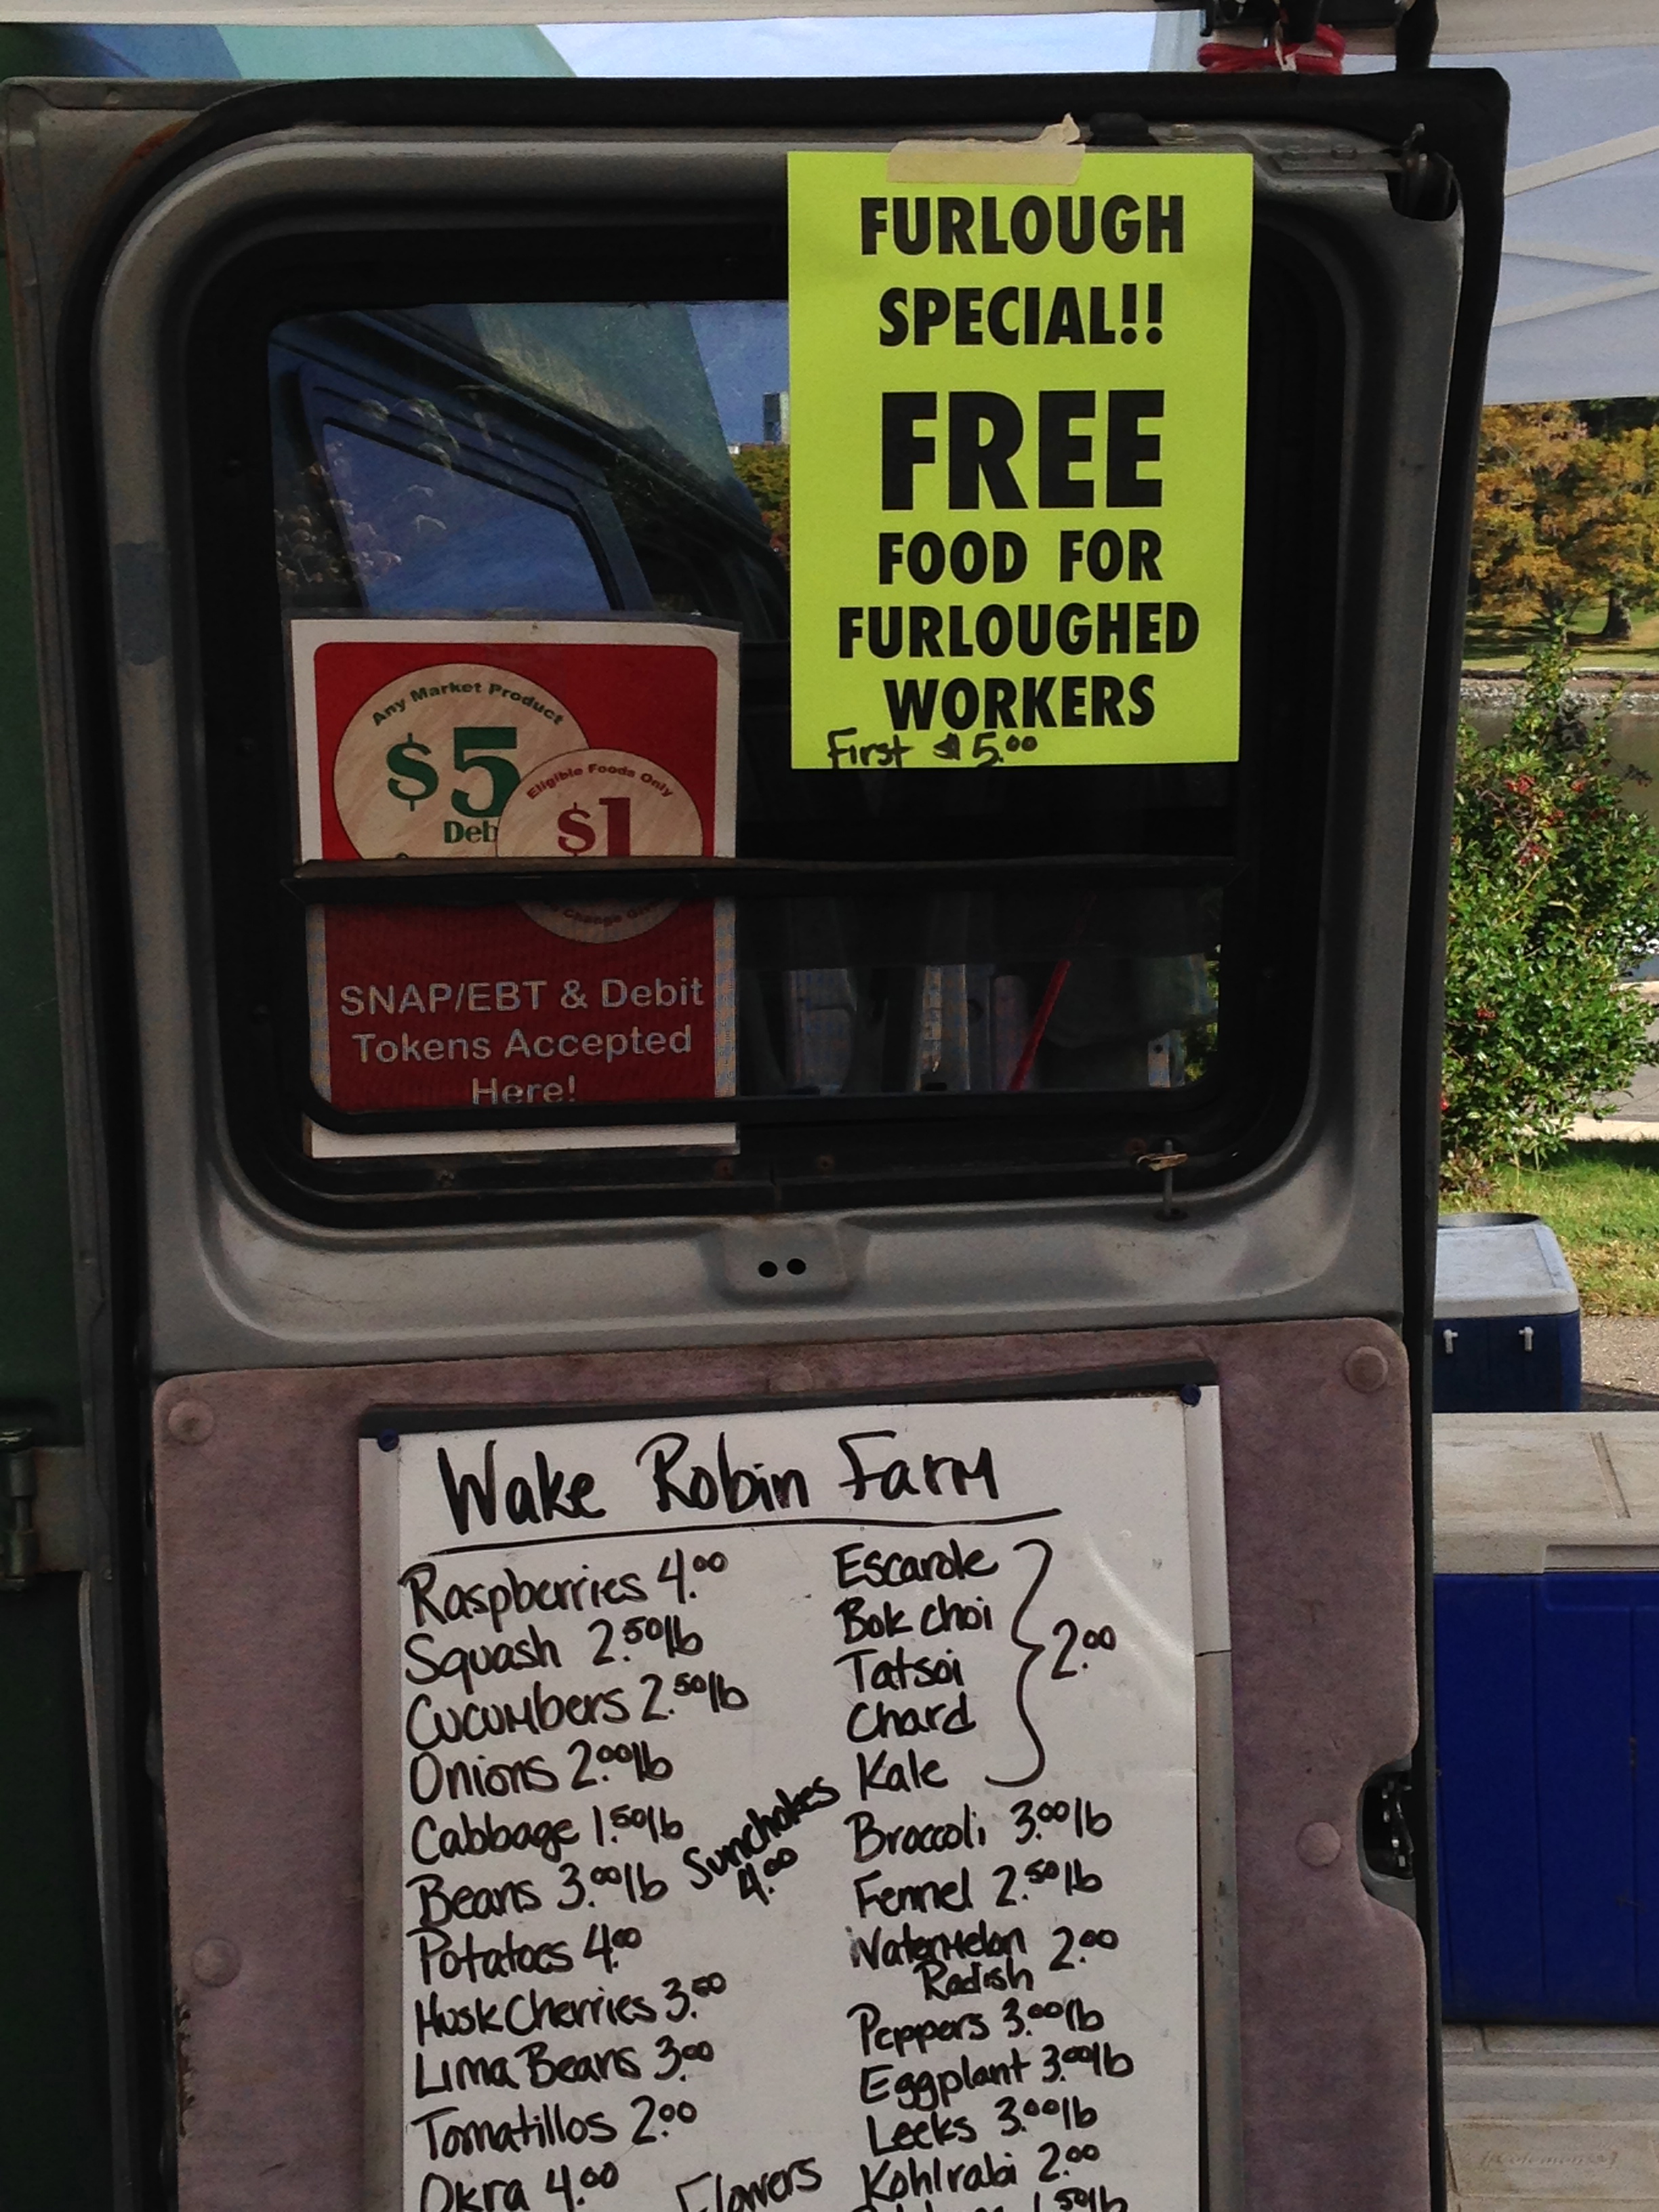 FURLOUGH
SPECIAL!!
FREE
FOOD FOR
FURLOUGHED
WORKERS
First $5.00
Any Market Product
$5
Deb
Eligible Foods Only
$1
Change
SNAP/EBT & Debit
Tokens Accepted
Here!
Wake Robin Farm
Raspberries 4.00
Squash 2.50 lb
Cucumbers 2.50 lb
Onions 2.00 lb
Cabbage 1.50 lb
Beans 3.00 lb
Potatoes 4.00
Husk Cherries 3.50
Lima Beans 3.00
Tomatillos 2.00
Okra 4.00
Sunchokes
4.00
Flowers
Escarole
Bok choi
Tatsoi
Chard
Kale
2.00
Broccoli 3.00 lb
Fennel 2.50 lb
Watermelon 2.00
Radish
Peppers 3.00 lb
Eggplant 3.00 lb
Leeks 3.00 lb
Kohlrabi 2.00
1.50 lb